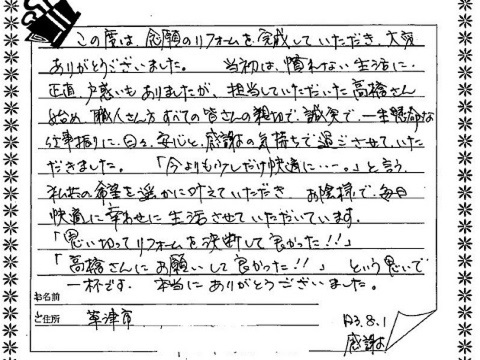 この度は、念願のリフォームを完成していただき、大変
ありがとうございました。 当初は、慣れない生活に、
正直、戸惑いもありましたが、担当していただいた高橋さん
始め、職人さん方すべての皆さんの親切で、誠実で、一生懸命な
仕事振りに、日々、安心と、感謝の気持ちで過ごさせていた
だきました。 「今よりもう少しだけ快適に・・・。」と言う
私共の希望を遥かに叶えていただき お陰様で、毎日
快適に幸わせに生活させていただいています。
「思い切ってリフォームを決断して良かった!!」
「高橋さんにお願いして良かった!!」 という思いで
一杯です。 本当にありがとうございました。
お名前
ご住所 草津市
H3.8.1
感謝